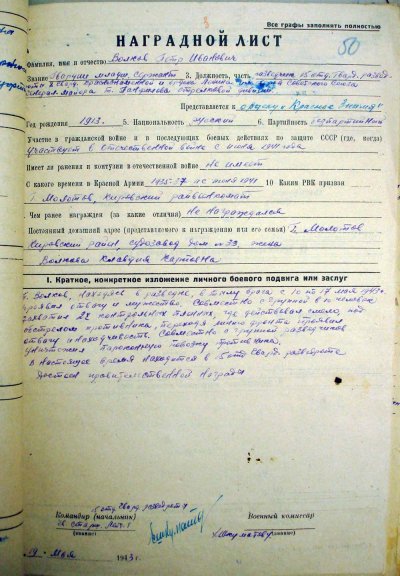 3
Все графы заполнять полностью
50
НАГРАДНОЙ ЛИСТ
Фамилия, имя и отчество Волков Петр Иванович
Звание Гвардии младш. Сержант 3. Должность, часть разведчик 15 отд. гвард. развед-
генерал майора т. Панфилова стрелковой дивизии
Представляется к ордену "Красное Знамя"
Год рождения 1913. 5. Национальность русский 6. Партийность беспартийный
Участие в гражданской войне и в последующих боевых действиях по защите СССР (где, когда)
участвует в отечественной войне с июня 1941 года
Имеет ли ранения и контузии в отечественной войне Не имеет
С какого времени в Красной Армии 1935-37 и с июня 1941 10 Каким РВК призван
г. Молотов, Кировский райвоенкомат
Чем ранее награжден (за какие отличия) Не награждался
Постоянный домашний адрес (представляемого к награждению или его семьи) г. Молотов
Кировский район, судозавод дом №33, жена
Волкова Клавдия Карповна
I. Краткое, конкретное изложение личного боевого подвига или заслуг
т. Волков, находясь в разведке, в тылу врага с 10 по 17 мая 1943 г.
проявил отвагу и мужество, совместно с группой в 10 человек
захватил 22 контрольных пленных, где действовал смело, под
обстрелом противника, переходя линию фронта проявил
отвагу и находчивость. Совместно с группой разведчиков
уничтожил пароконную повозку противника.
В настоящее время находится в 15 отд. гвард. разведроте
Достоин правительственной награды
Командир (начальник)
Военный комиссар
гв. старш. лейт.
(звание)
(звание)
19 " мая 1943 г.